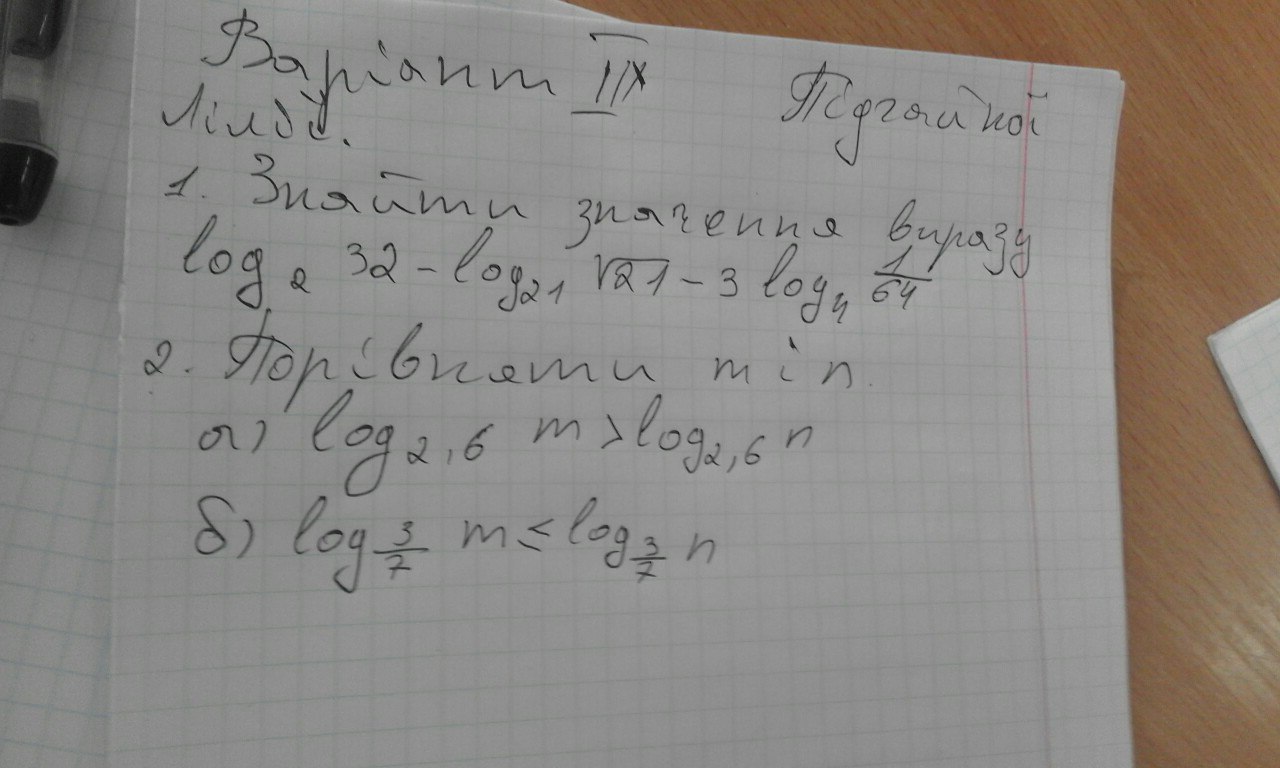 Варіант IIX Підгайної
Лілії.
1. Знайти значення виразу
log₂ 32 - log₂₁ √21 - 3 log₄ 1/64
2. Порівняти m i n.
а) log₂,₆ m > log₂,₆ n
б) log 3/7 m ≤ log 3/7 n